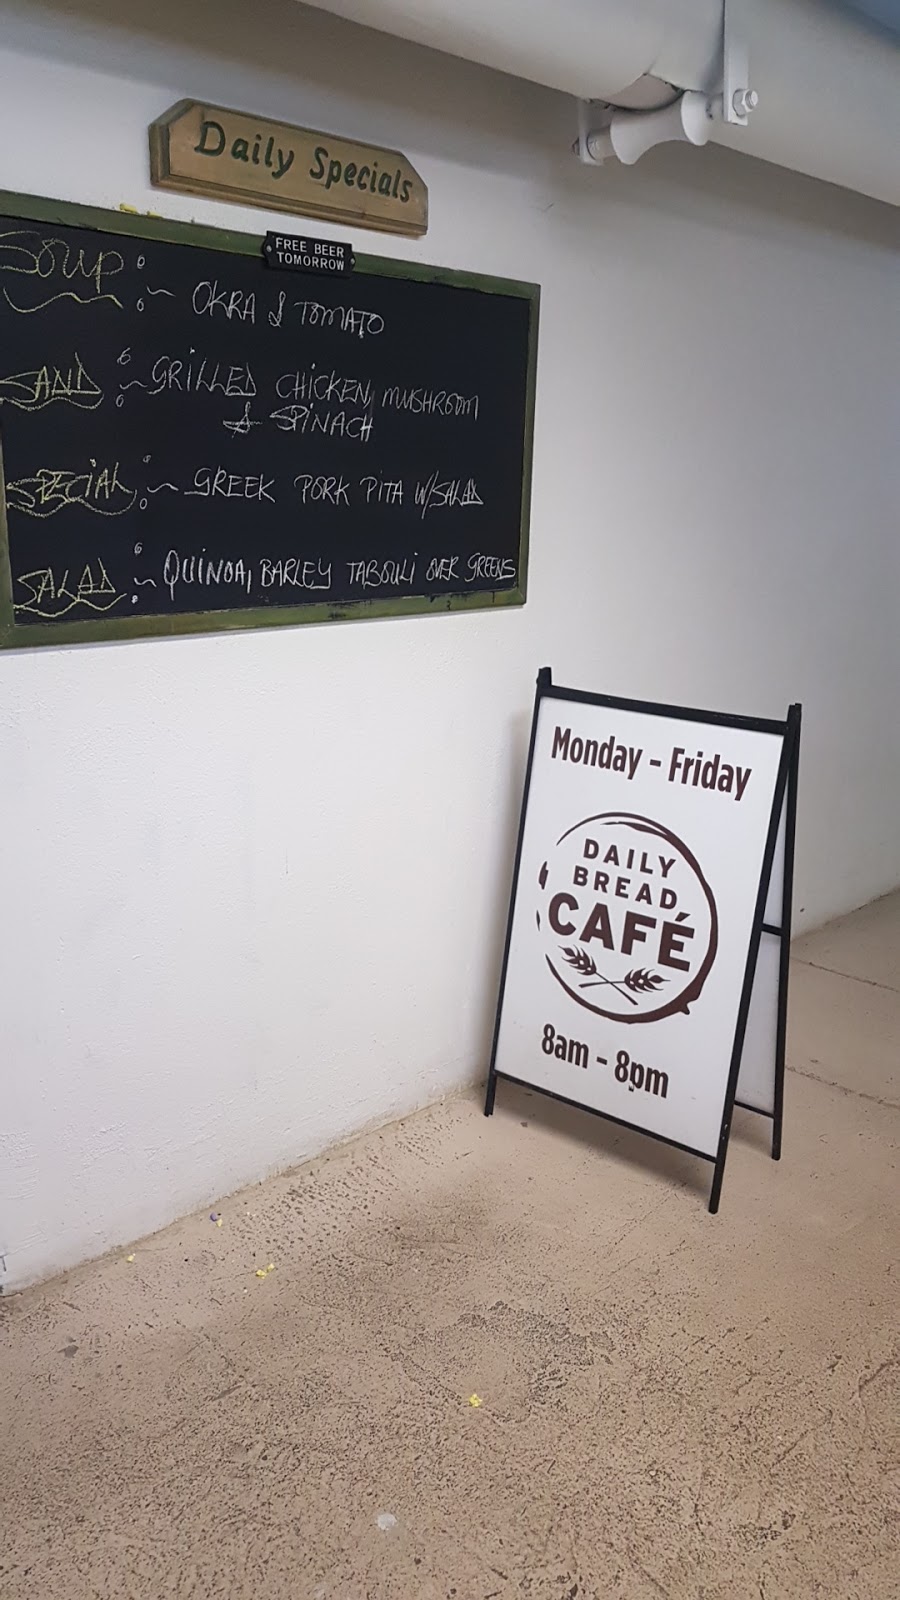 Daily Specials
FREE BEER
TOMORROW
SOUP: ~ OKRA & TOMATO
SAND: ~ GRILLED CHICKEN, MUSHROOM
& SPINACH
SPECIAL: ~ GREEK PORK PITA W/SALAD
SALAD: ~ QUINOA, BARLEY TABOULI OVER GREENS
Monday - Friday
DAILY
BREAD
CAFÉ
8am - 8pm